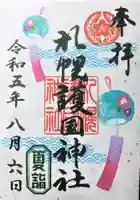 奉拝
札幌護国神社
令和五年八月六日
夏詣